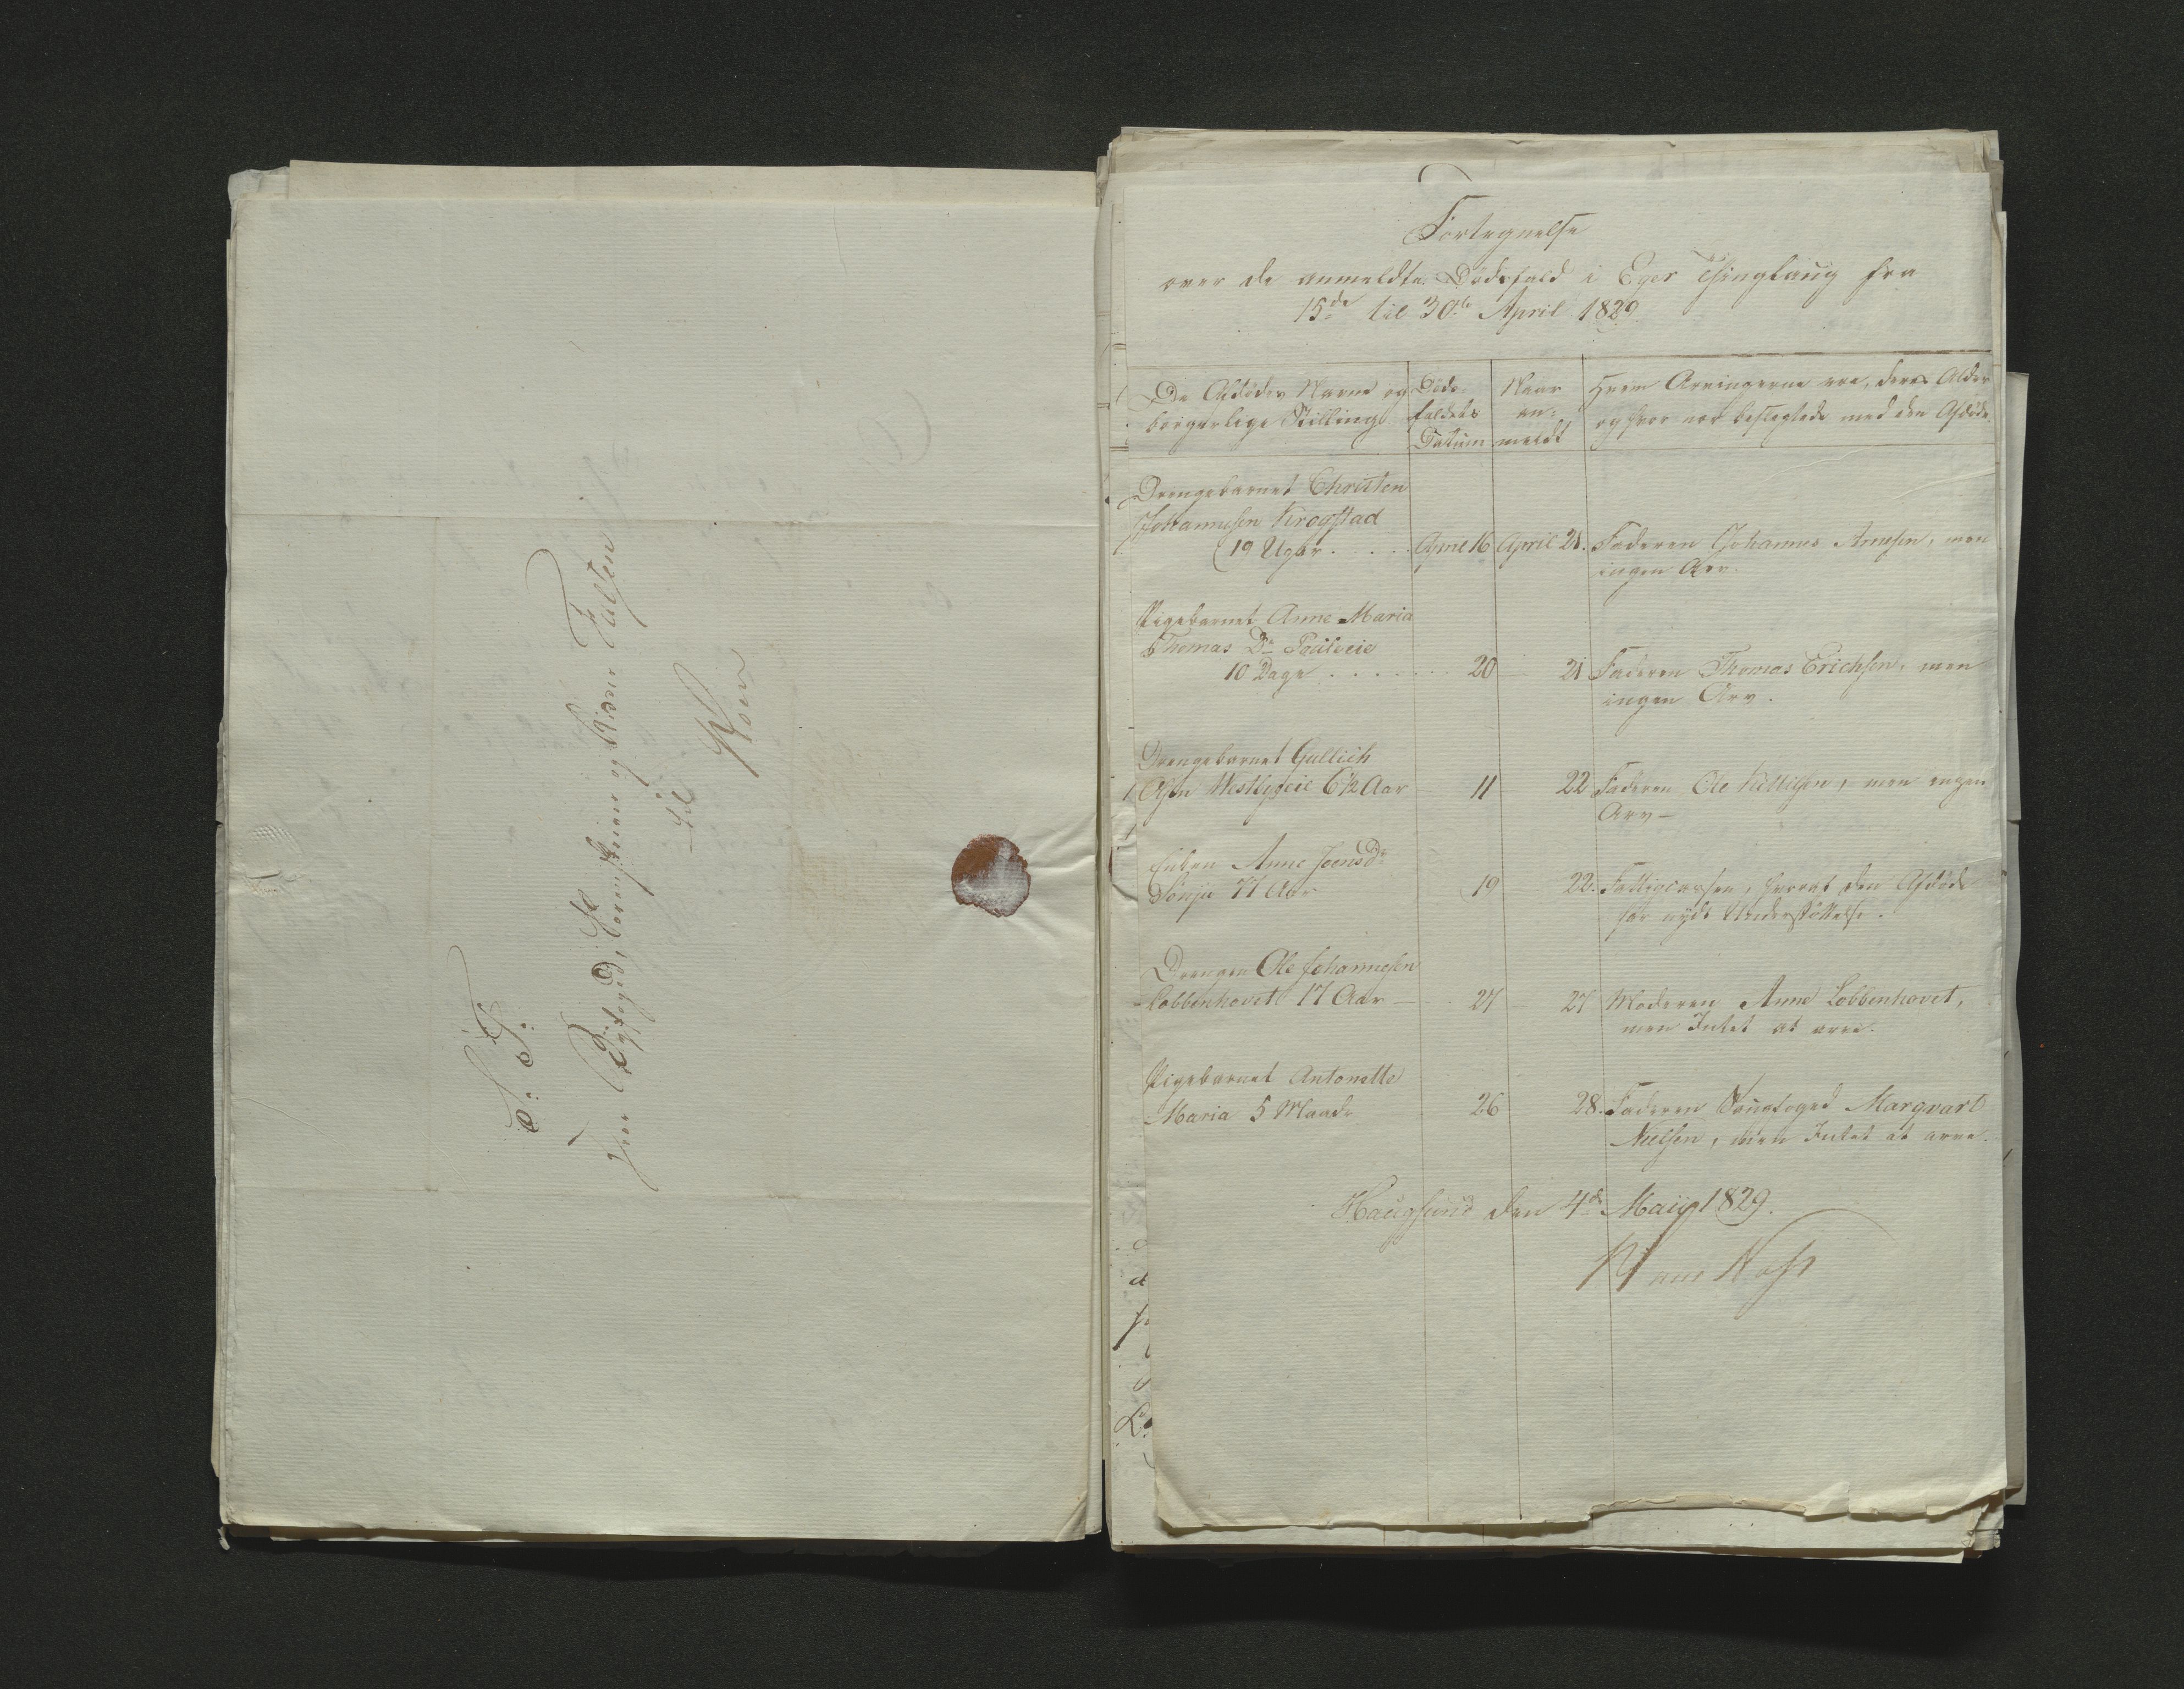 S. T.
Herr Byfoged, Sorenskriver og Ridder Falsen
til
Fortegnelse
over de anmeldte Dødsfald i Eger Thinglaug fra
15de til 30te April 1829
De Afdødes Navne og
borgerlige Stilling
Døds-
faldets
Datum
Naar
an-
meldt
Hvem Arvingerne ere, deres Alder
og hvor nær beslegtede med den Afdøde.
Drengebarnet Christen
Johannesen Krogstad
19 Uger . . . . April 16 April 21. Faderen Johannes Arnesen, men
ingen Arv.
Pigebarnet Anne Maria
Thomas Dr
10 Dage . . . . . . 20 — 21 Faderen Thomas Erichsen, men
ingen Arv.
Drengebarnet Gullich
Olsen Vestbyeie 6½ Aar 11 22 Faderen Ole Kittilsen, men ingen
Arv —
Enken Anne Joensdr
Sønju 77 Aar 19 22. Fattigcassen, hvoraf den Afdøde
har nydt Understøttelse.
Drengen Ole Johannesen
Lobbenhovet 17 Aar — 27 — 27 Moderen Anne Lobbenhovet,
men Intet at arve.
Pigebarnet Antonette
Maria 5 Maad. 26 28. Faderen Marqvart
Nielsen, men Intet at arve.
Haugsund den 4de Maii 1829.